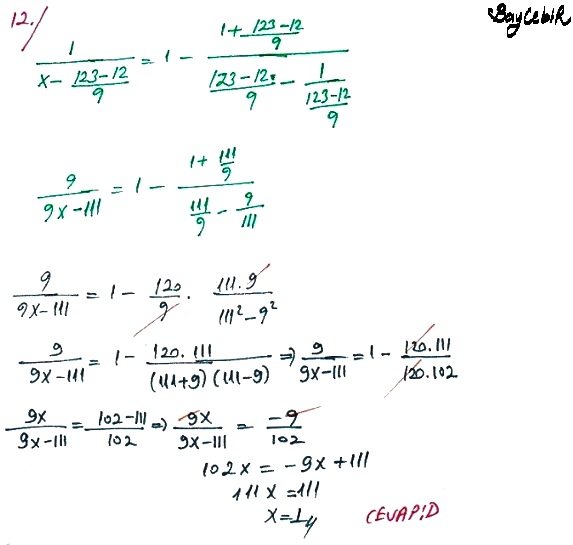 12./ BayCebiR
1/(x - (123-12)/9) = 1 - (1 + (123-12)/9)/((123-12)/9 - 1/((123-12)/9))
9/(9x-111) = 1 - (1 + 111/9)/(111/9 - 9/111)
9/(9x-111) = 1 - 120/9 . (111.9)/(111²-9²)
9/(9x-111) = 1 - (120.111)/((111+9)(111-9)) ⇒ 9/(9x-111) = 1 - (120.111)/(120.102)
9x/(9x-111) = (102-111)/102 ⇒ 9x/(9x-111) = -9/102
102x = -9x+111
111x = 111
x=1// CEVAP:D